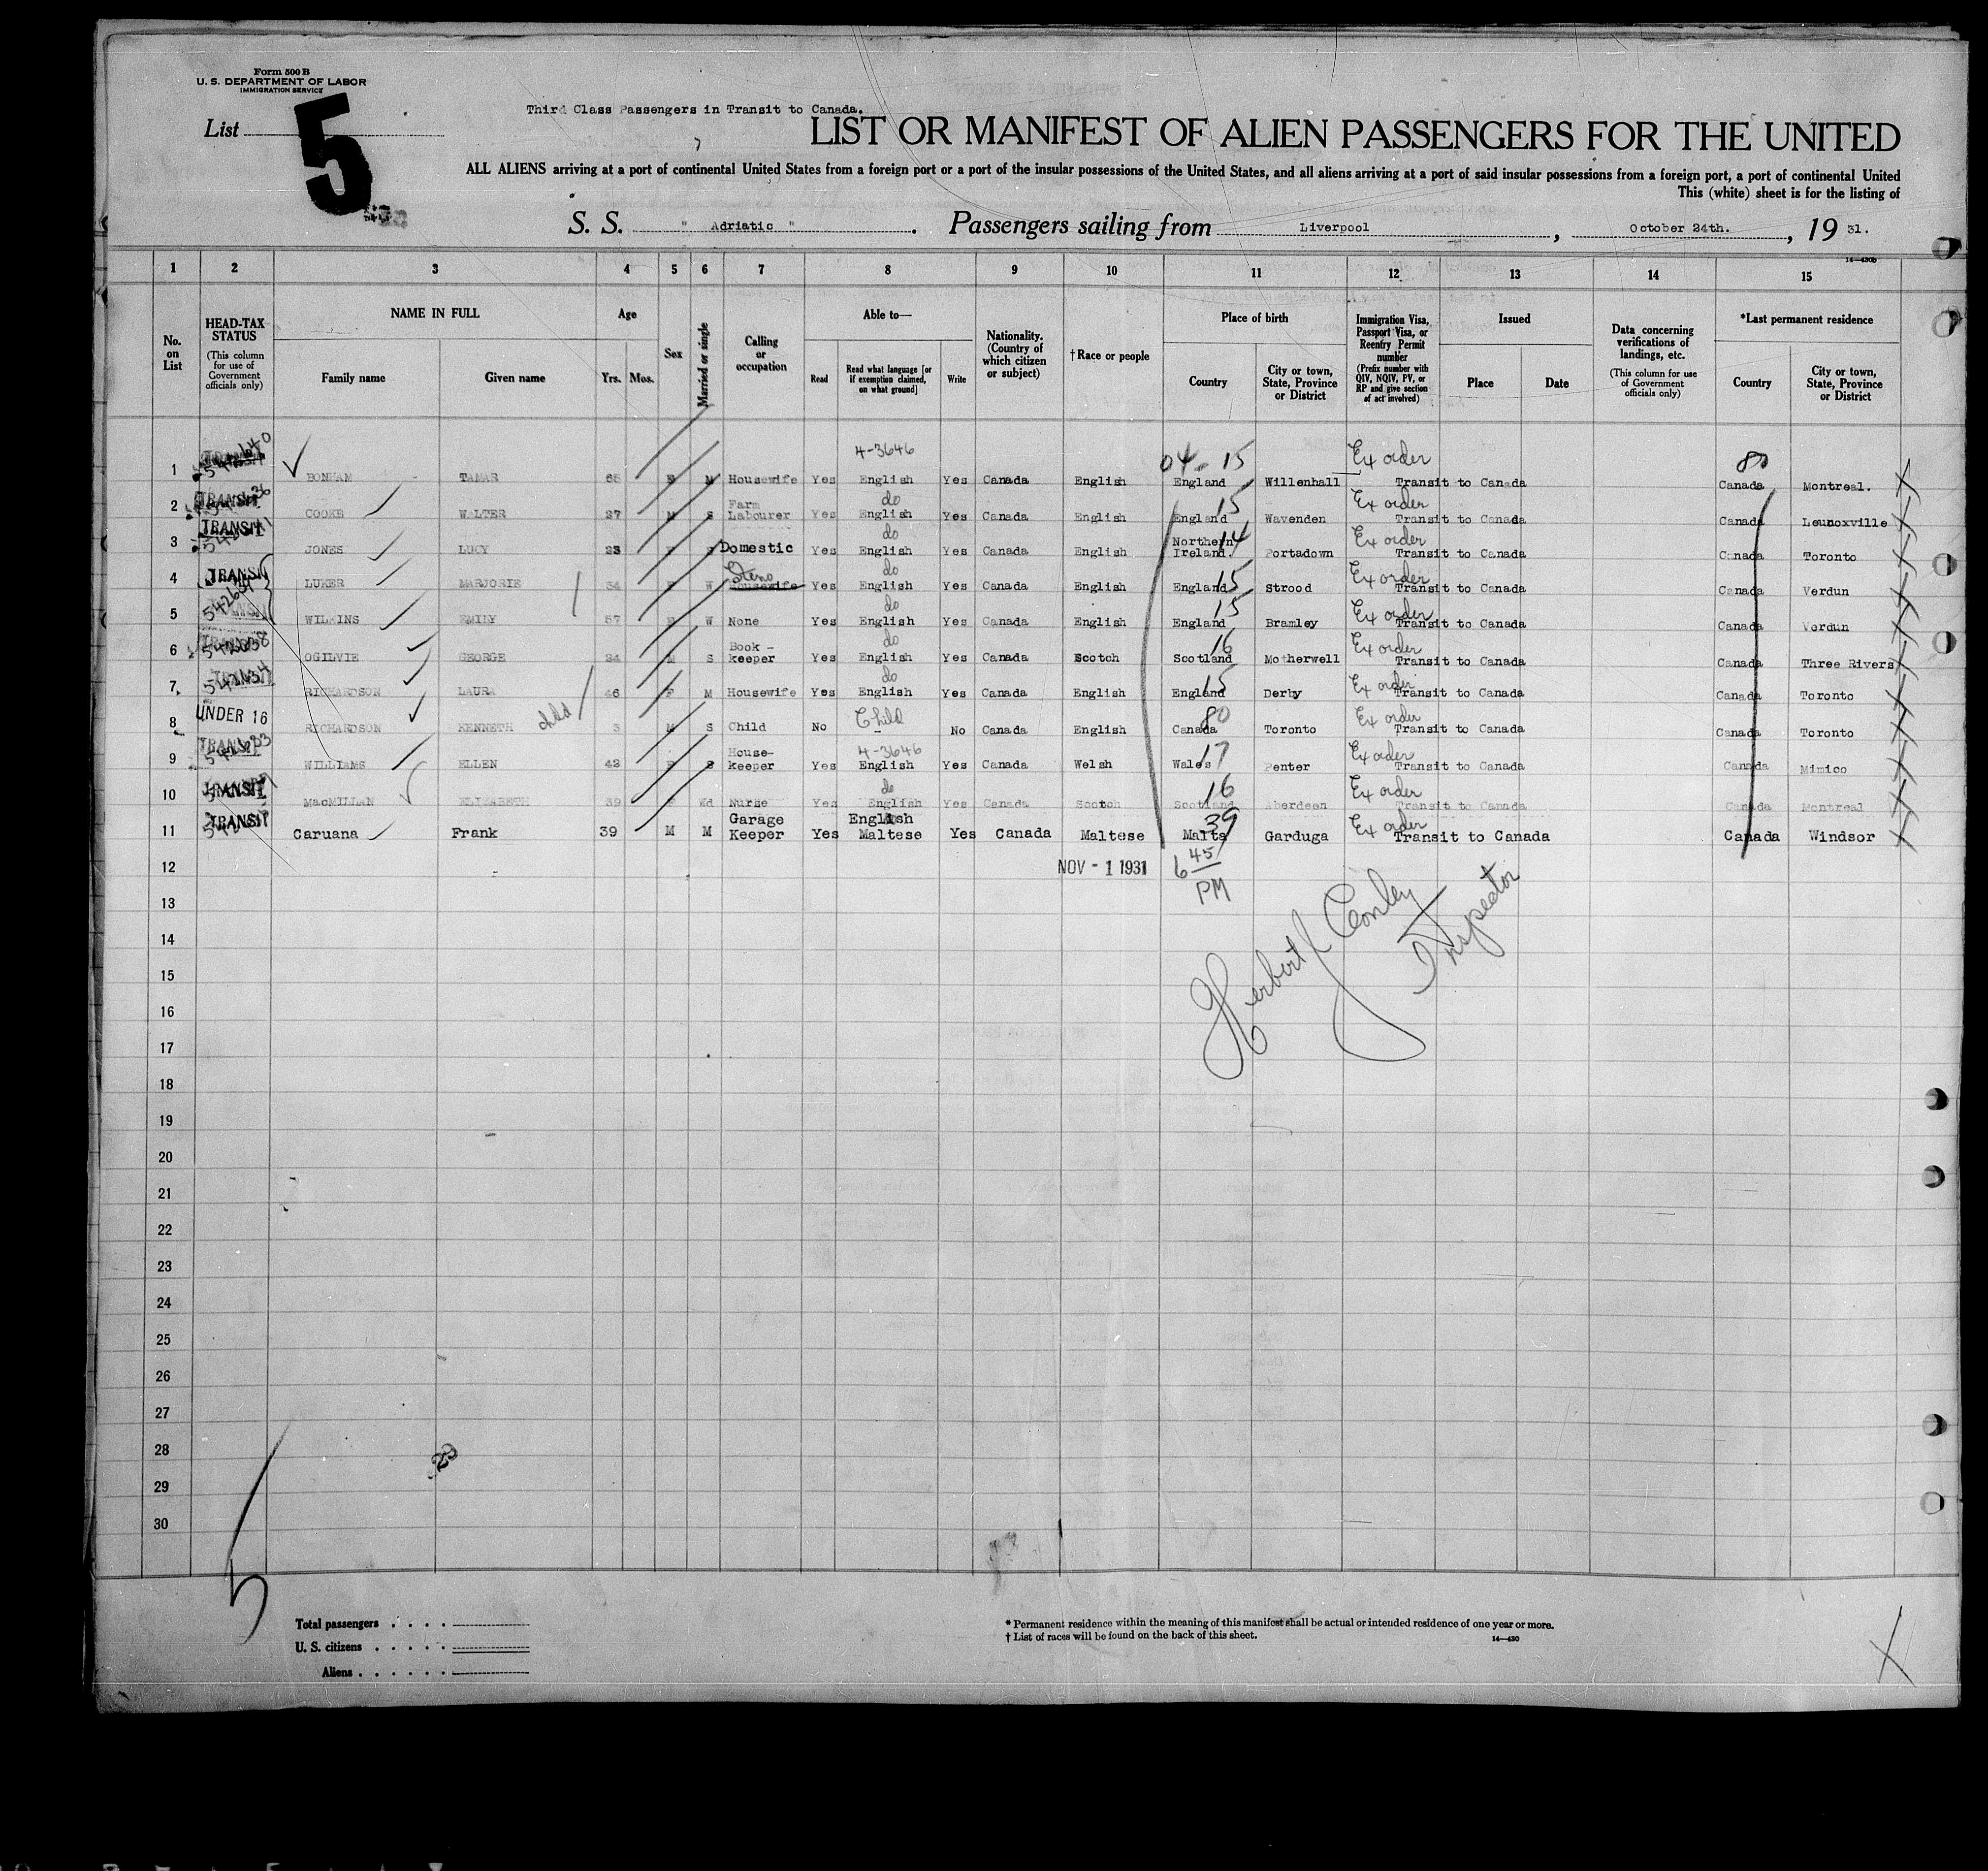 Form 500 B
U. S. DEPARTMENT OF LABOR
IMMIGRATION SERVICE
Third Class Passengers in Transit to Canada.
List 5
LIST OR MANIFEST OF ALIEN PASSENGERS FOR THE UNITED
ALL ALIENS arriving at a port of continental United States from a foreign port or a port of the insular possessions of the United States, and all aliens arriving at a port of said insular possessions from a foreign port, a port of continental United
This (white) sheet is for the listing of
S. S. " Adriatic " . Passengers sailing from Liverpool , October 24th. , 19 31.
14—430b
1 2 3 4 5 6 7 8 9 10 11 12 13 14 15
No. on List
HEAD-TAX STATUS (This column for use of Government officials only)
NAME IN FULL Family name Given name
Age Yrs. Mos.
Sex
Married or single
Calling or occupation
Able to— Read Read what language [or if exemption claimed, on what ground] Write
Nationality. (Country of which citizen or subject)
†Race or people
Place of birth Country City or town, State, Province or District
Immigration Visa, Passport Visa, or Reentry Permit number (Prefix number with QIV, NQIV, PV, or RP and give section of act involved)
Issued Place Date
Data concerning verifications of landings, etc. (This column for use of Government officials only)
*Last permanent residence Country City or town, State, Province or District
4-3646 04- 15 Ex order 80
1 BONHAM TAMAR 65 F M Housewife Yes English Yes Canada English England Willenhall Transit to Canada Canada Montreal.
TRANSIT do 15 Ex order
2 COOKE WALTER 27 M S Farm Labourer Yes English Yes Canada English England Wavenden Transit to Canada Canada Lennoxville
TRANSIT do 14 Ex order
3 JONES LUCY 23 F S Domestic Yes English Yes Canada English Northern Ireland. Portadown Transit to Canada Canada Toronto
TRANSIT Steno do 15 Ex order
4 LUKER MARJORIE 34 F W Housewife Yes English Yes Canada English England Strood Transit to Canada Canada Verdun
do 15 Ex order
5 WILKINS EMILY 57 F W None Yes English Yes Canada English England Bramley Transit to Canada Canada Verdun
TRANSIT do 16 Ex order
6 OGILVIE GEORGE 24 M S Book-keeper Yes English Yes Canada Scotch Scotland Motherwell Transit to Canada Canada Three Rivers
TRANSIT do 15 Ex order
7 RICHARDSON LAURA 46 F M Housewife Yes English Yes Canada English England Derby Transit to Canada Canada Toronto
UNDER 16 child Child 80 Ex order
8 RICHARDSON KENNETH 3 M S Child No - No Canada English Canada Toronto Transit to Canada Canada Toronto
TRANSIT 4-3646 17 Ex order
9 WILLIAMS ELLEN 43 F S House-keeper Yes English Yes Canada Welsh Wales Penter Transit to Canada Canada Mimico
TRANSIT do 16 Ex order
10 MacMILLAN ELIZABETH 39 F Wd Nurse Yes English Yes Canada Scotch Scotland Aberdeen Transit to Canada Canada Montreal
TRANSIT 39 Ex order
11 Caruana Frank 39 M M Garage Keeper Yes English Maltese Yes Canada Maltese Malta Garduga Transit to Canada Canada Windsor
12 NOV - 1 1931 6 45 PM
13
14
Herbert J Conley Inspector
15
16
17
18
19
20
21
22
23
24
25
26
27
28
29
30
5
Total passengers . . . .
U. S. citizens . . . . .
Aliens . . . . . .
* Permanent residence within the meaning of this manifest shall be actual or intended residence of one year or more.
† List of races will be found on the back of this sheet.
14—430